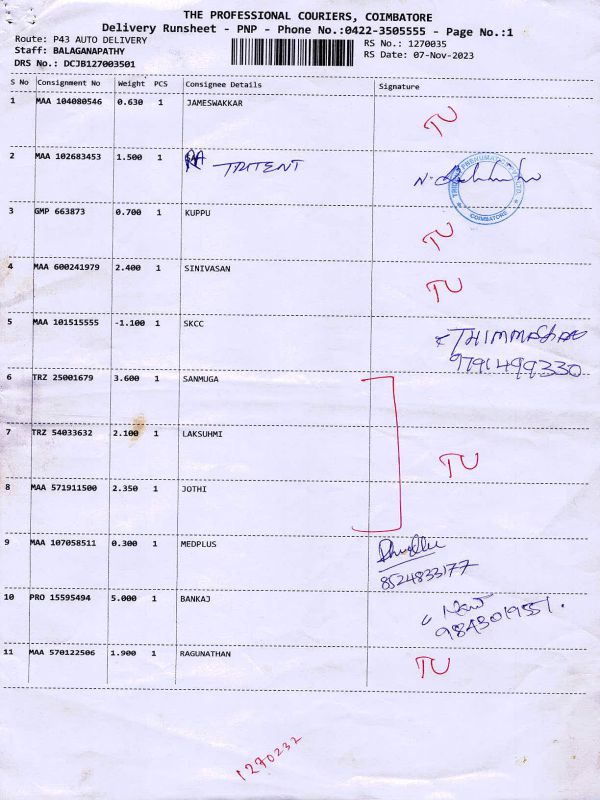 THE PROFESSIONAL COURIERS, COIMBATORE
Delivery Runsheet - PNP - Phone No.:0422-3505555 - Page No.:1
Route: P43 AUTO DELIVERY RS No.: 1270035
Staff: BALAGANAPATHY RS Date: 07-Nov-2023
DRS No.: DCJB127003501
S No Consignment No Weight PCS Consignee Details Signature
1 MAA 104080546 0.630 1 JAMESWAKKAR TU
2 MAA 102683453 1.500 1 TRITENT N.
COIMBATORE
3 GMP 663873 0.700 1 KUPPU TU
4 MAA 600241979 2.400 1 SINIVASAN TU
5 MAA 101515555 -1.100 1 SKCC
9791499330
6 TRZ 25001679 3.600 1 SANMUGA
7 TRZ 54033632 2.100 1 LAKSUHMI TU
8 MAA 571911500 2.350 1 JOTHI
9 MAA 107058511 0.300 1 MEDPLUS
8524833177
10 PRO 15595494 5.000 1 BANKAJ
9843019551.
11 MAA 570122506 1.900 1 RAGUNATHAN TU
1270232